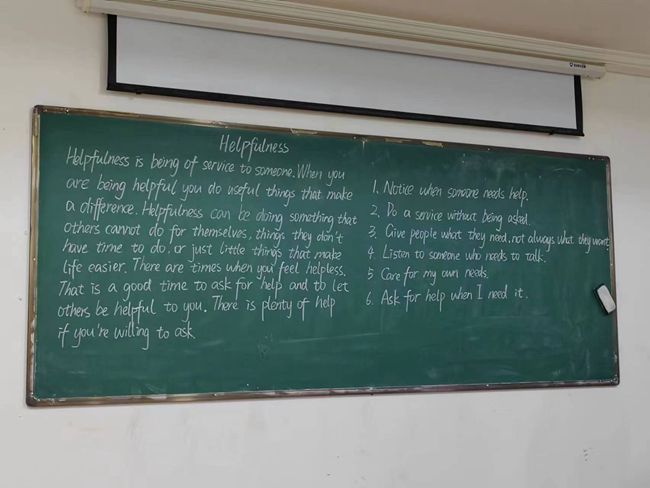 Helpfulness
Helpfulness is being of service to someone. When you
are being helpful you do useful things that make
a difference. Helpfulness can be doing something that
others cannot do for themselves, things they don't
have time to do, or just little things that make
life easier. There are times when you feel helpless.
That is a good time to ask for help and to let
others be helpful to you. There is plenty of help
if you're willing to ask
1. Notice when someone needs help.
2. Do a service without being asked.
3. Give people what they need, not always what they want.
4. Listen to someone who needs to talk.
5 Care for my own needs.
6. Ask for help when I need it.